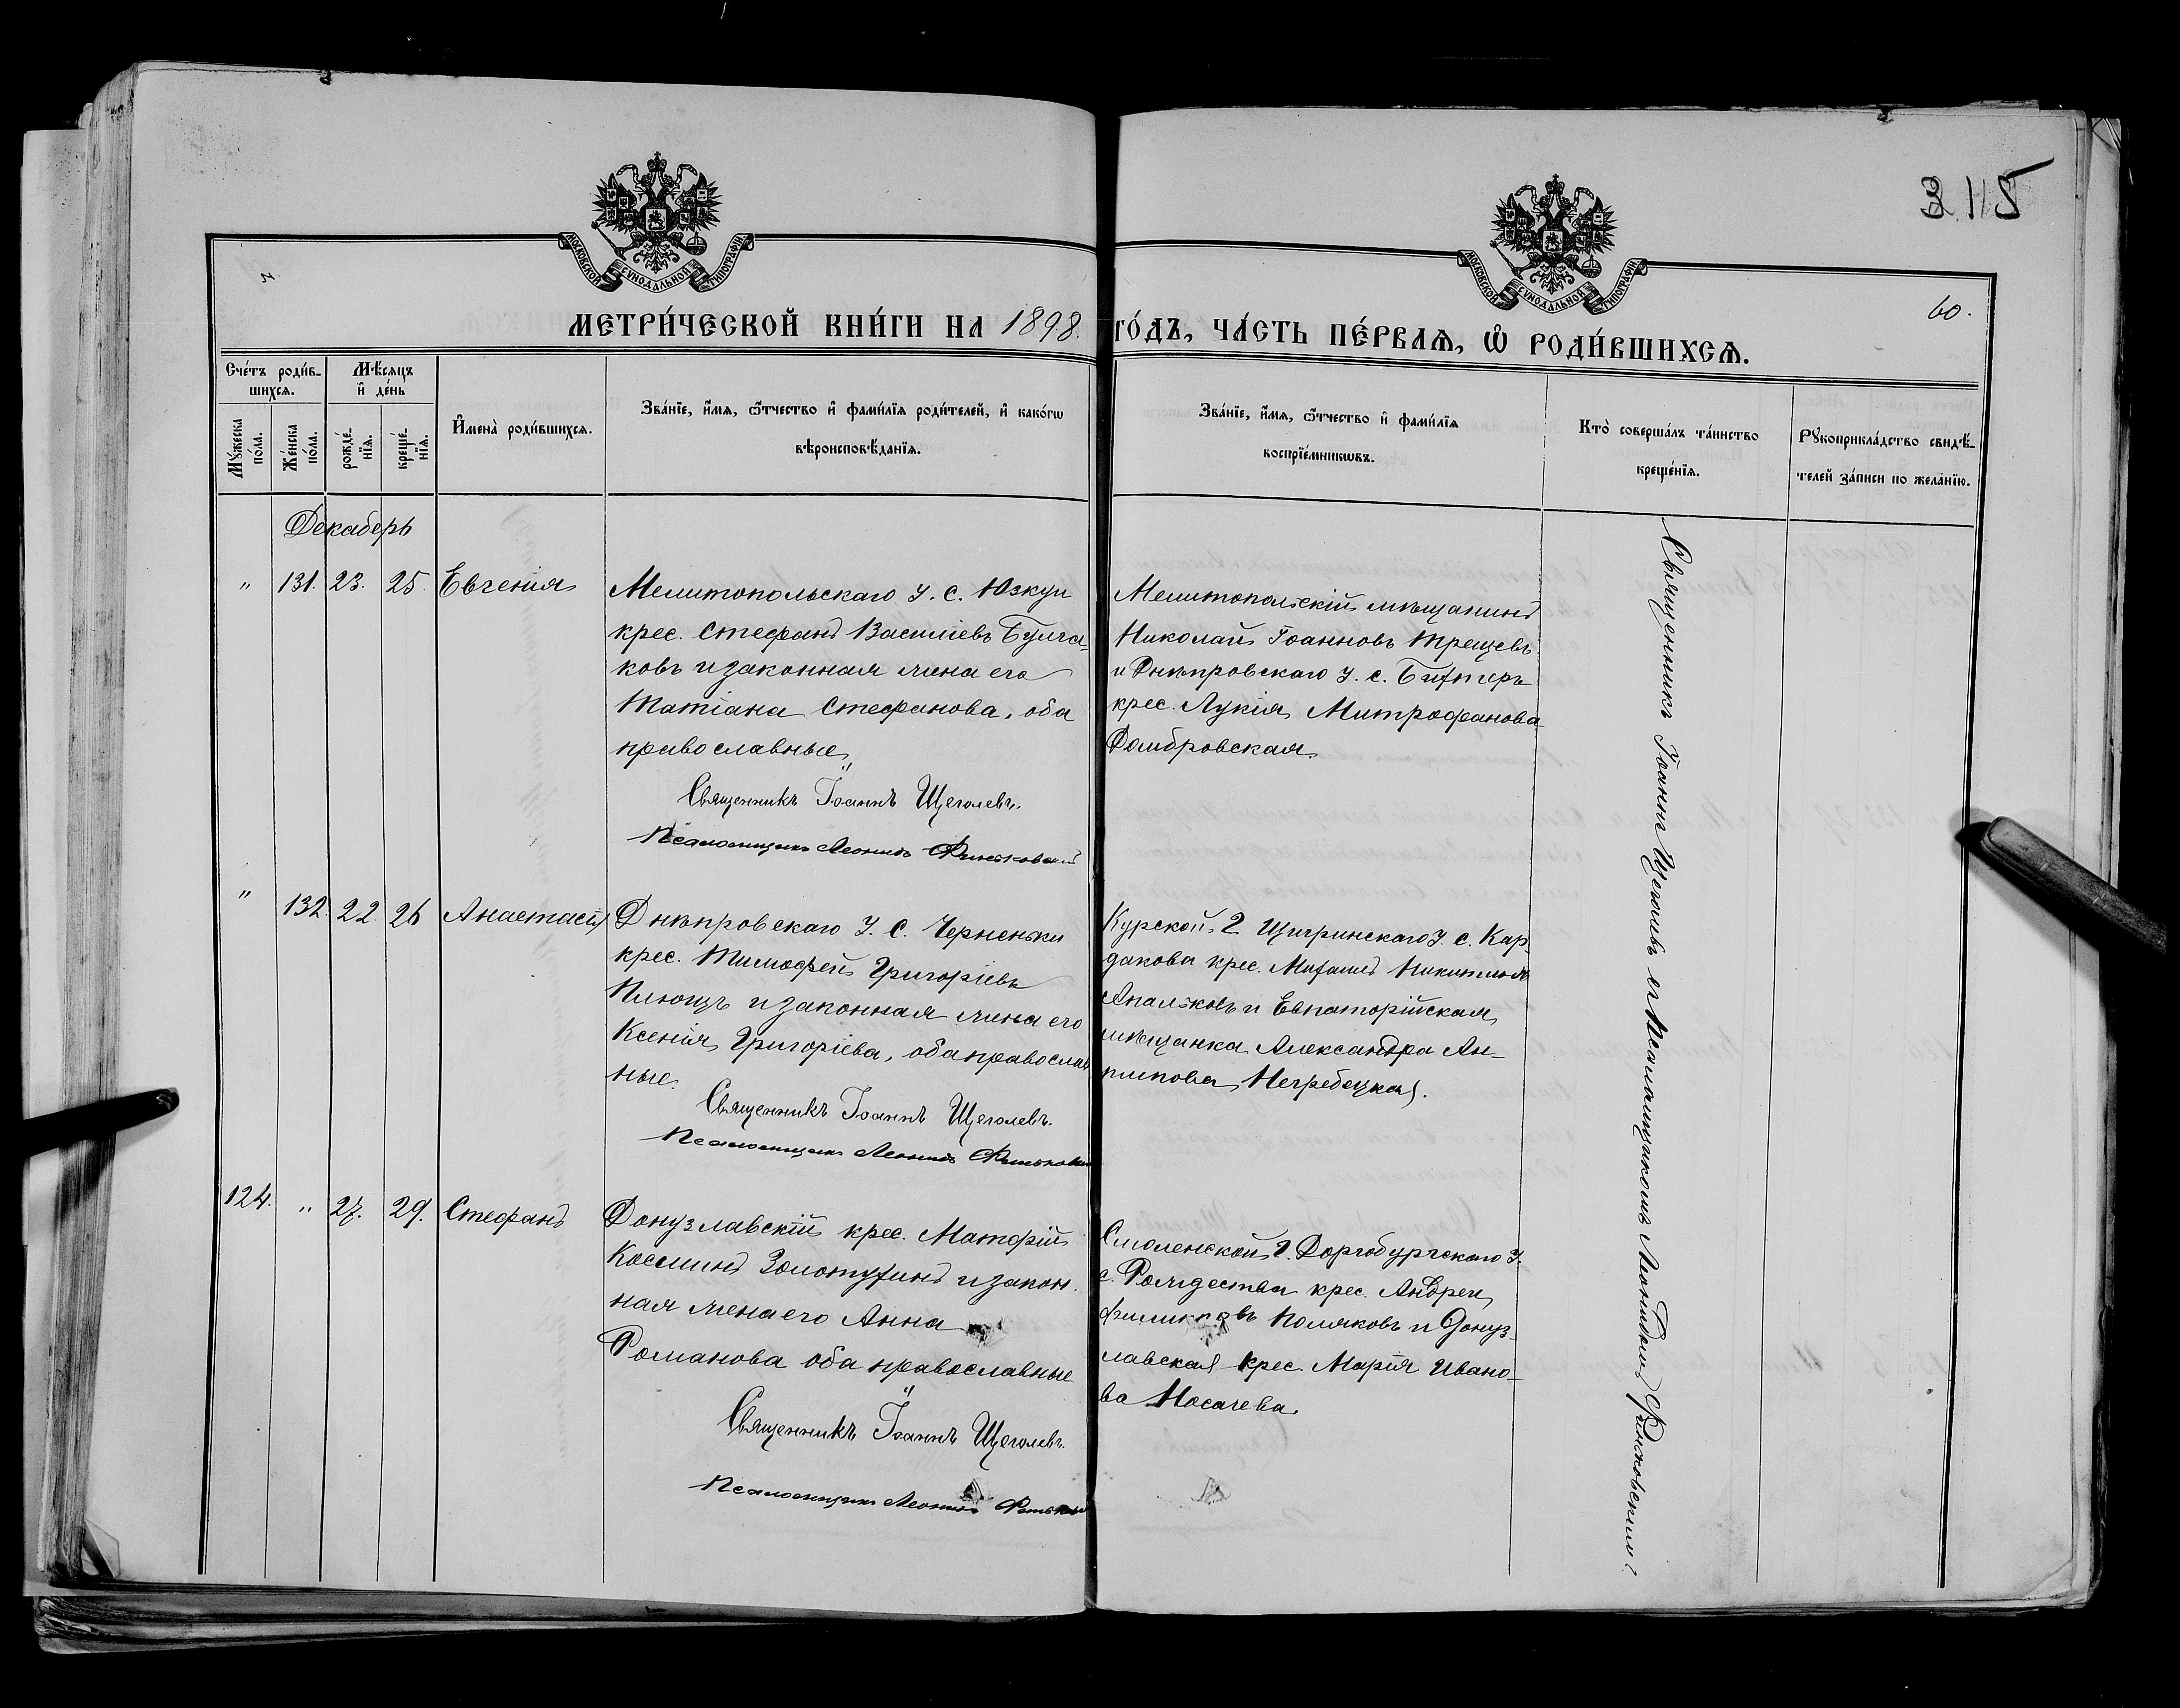 315
МОСКОВСКОЙ СѴНОДАЛЬНОЙ ТИПОГРАФІИ
МОСКОВСКОЙ СѴНОДАЛЬНОЙ ТИПОГРАФІИ
60.
МЕТРИ́ЧЕСКОЙ КНИ́ГИ НА 1898. ГО́ДЪ, ЧА́СТЬ ПЕ́РВАѦ, Ѡ҆ РОДИ́ВШИХСѦ.
Сче́тъ роди́в-
шихсѧ.
Мꙋ́жеска по́ла.
Же́нска по́ла.
Мѣ́сѧцъ и҆ де́нь
рожде́-
нїѧ.
креще́-
нїѧ.
И҆мена̀ роди́вшихсѧ.
Зва́нїе, и҆́мѧ, ѻ҆́тчество и҆ фами́лїѧ роди́телей, и҆ како́гѡ
вѣроисповѣ́данїѧ.
Зва́нїе, и҆́мѧ, ѻ҆́тчество и҆ фами́лїѧ
воспрїе́мникѡвъ.
Кто̀ соверша́лъ та́инство
креще́нїѧ.
Рꙋкоприкла́дство свидѣ́-
телей за́писи по жела́нїю.
Декабрь
" 131. 23. 25. Евгенія
Мелитопольскаго У. С. Юзкуи
крес. Стефанъ Василіевъ Булга-
ковъ и законная жена его
Татіана Стефанова, оба
православные
Священникъ Іоаннъ Щеголевъ.
Псаломщикъ Леонидъ
Мелитопольскій мѣщанинъ
Николай Іоанновъ Трещевъ
и Днѣпровскаго У. с.
крес. Лукія Митрофанова
Домбровская.
" 132. 22. 26 Анастасія
Днѣпровскаго У. С. Черненьки
крес. Тимофей Григоріевъ
Плющъ и законная жена его
Ксенія Григоріева, оба православ
ные.
Священникъ Іоаннъ Щеголевъ.
Псаломщикъ Леонидъ
Курской г. Щигринскаго У. с. Кар
дакова крес. Михаилъ Никитинъ
Апальковъ и Евпаторійская
мѣщанка Александра Ан-
типова Негребецкая.
124. " 27. 29. Стефанъ
Донузлавскій крес. Матфій
Косминъ Золотухинъ и закон.
ная жена его Анна
Романова оба православные
Священникъ Іоаннъ Щеголевъ.
Псаломщикъ Леонидъ
Смоленской г. Доргобургскаго У.
с. Рождества крес. Андрей
Филиповъ Поляковъ и Донуз-
лавская крес. Марія Ивано-
ва Носачева.
Священникъ Іоаннъ Щеголевъ съ Псаломщикомъ Леонидомъ